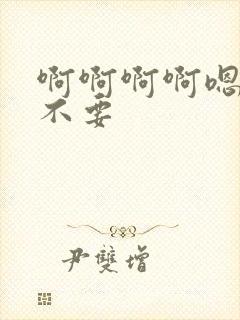 啊啊啊啊嗯
不要
尹雙增